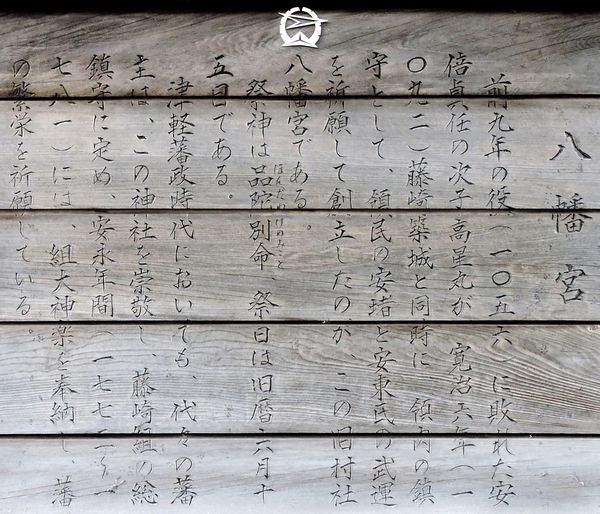 八幡宮
前九年の役(一〇五六)に敗れた安
倍貞任の次子 高星丸が 寛治六年(一
〇九二)藤崎築城と同時に 領内の鎮
守として、領民の安堵と安東氏の武運
を祈願して創立したのが、この旧村社
八幡宮である。
祭神は品陀別命、祭日は旧暦六月十
五日である。
津軽藩政時代においても、代々の藩
主は、この神社を崇敬し、藤崎組の総
鎮守に定め、安永年間(一七七二〜一
七八一)には、組大神楽を奉納し、藩
の繁栄を祈願している。